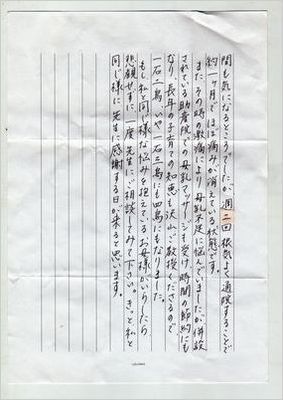 間も気になるところでしたが、週二回根気よく通院することで
約一ヶ月でほぼ痛みが消えている状態です。
また、その時の激痛により母乳不足に悩んでいましたが、併設
されている助産院での母乳マッサージも受け、時間の節約にも
なり、長年の子育ての知恵も沢山ご教授くださるので
一石二鳥いや一石三鳥にも四鳥にもなりました。
もし私と同じ様な悩みを抱えているお母様がいらしたら
悲観せずに、一度先生にご相談してみて下さい。きっと私と
同じ様に先生に感謝する日が来ると思います。